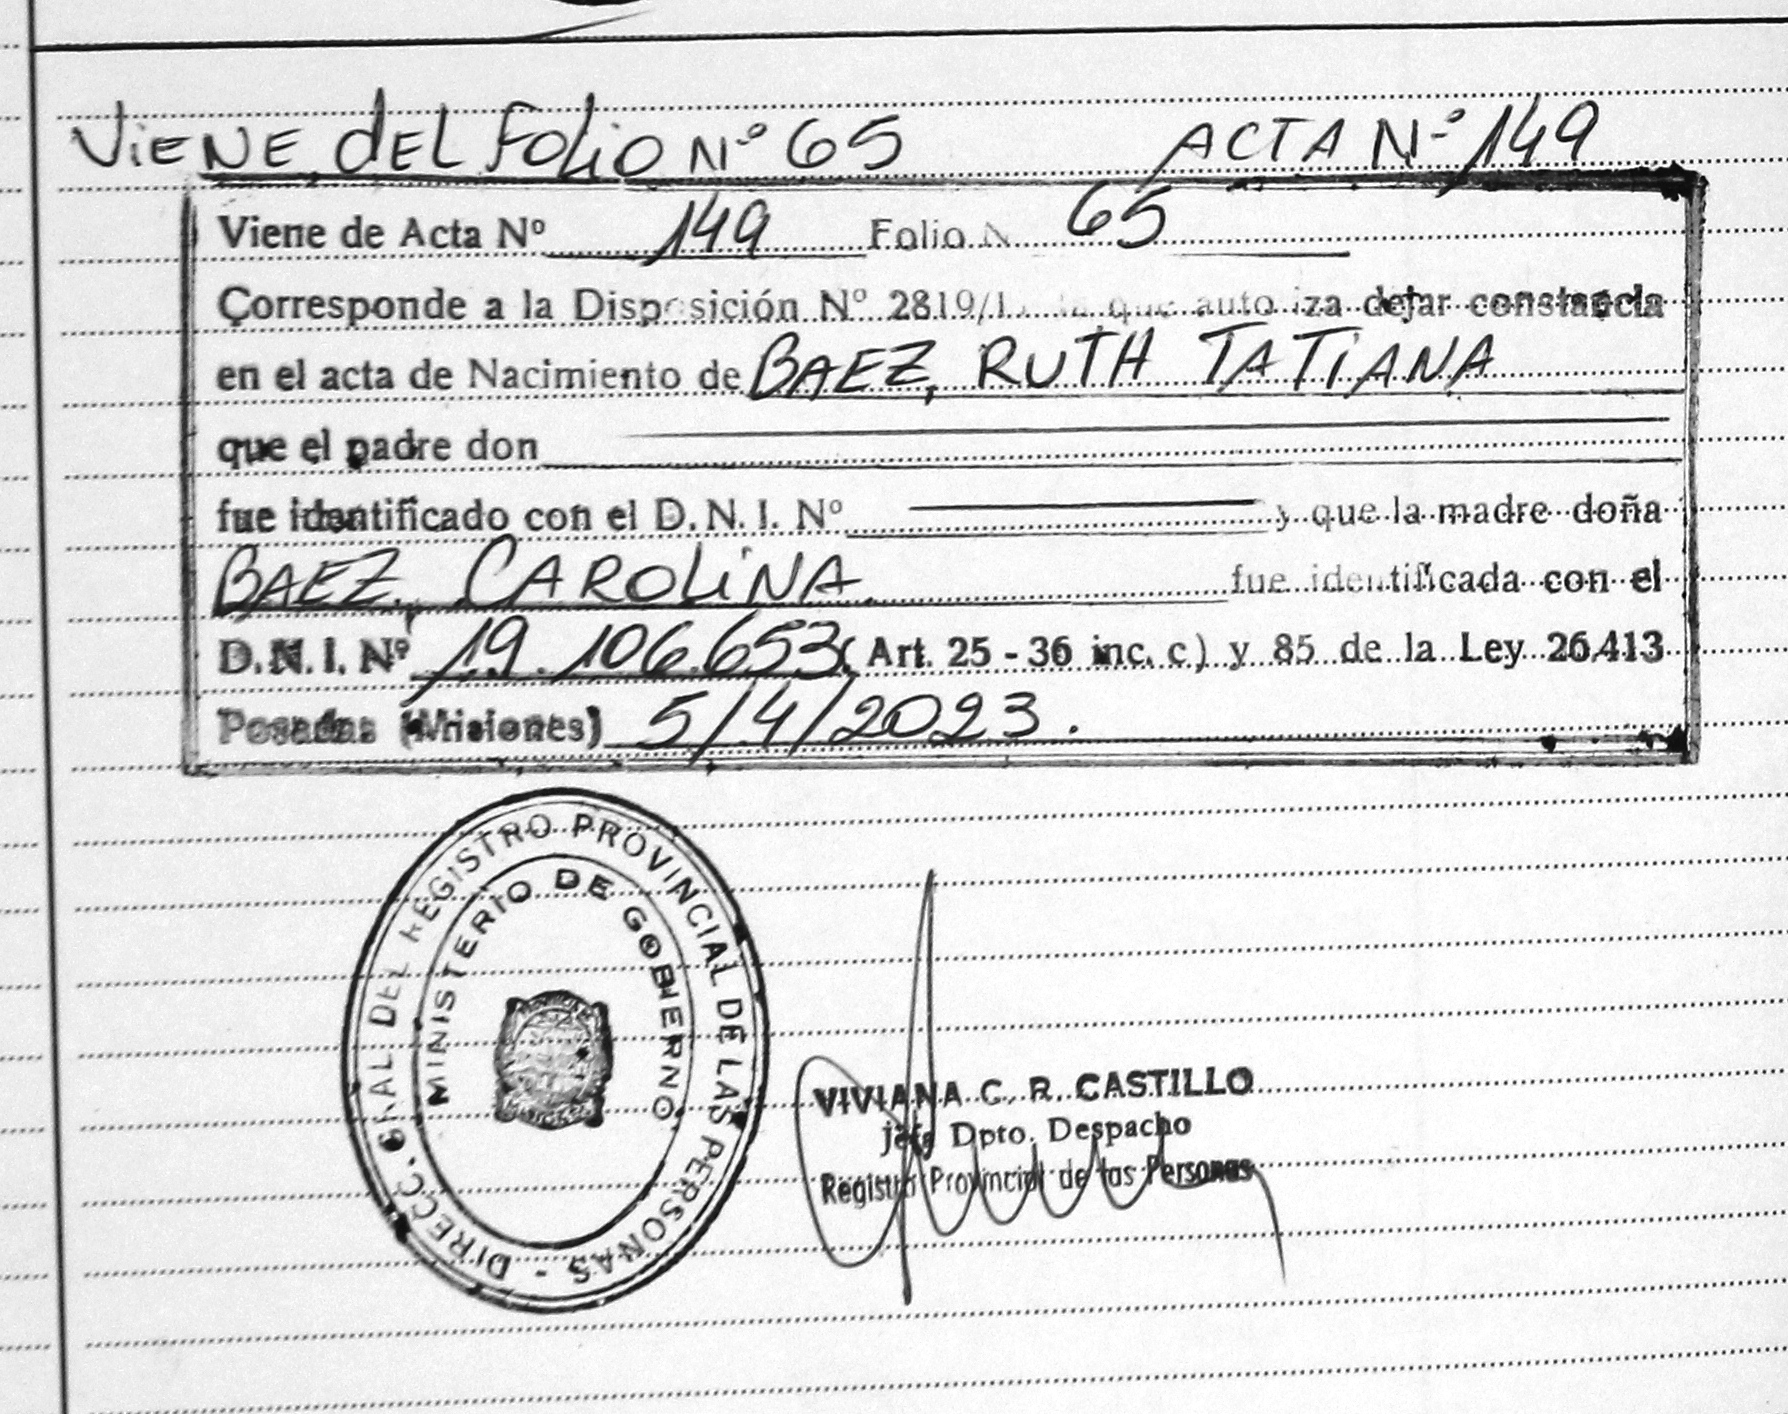 ViENE DEL FOLiO Nº 65 ACTA Nº 149
Viene de Acta Nº 149 Folio N 65
Corresponde a la Disposición Nº 2819/1 la que autoriza dejar constancia
en el acta de Nacimiento de BAEZ, RUTH TATiANA
que el padre don
fue identificado con el D.N.I. Nº y que la madre doña
BAEZ, CAROLiNA. fue identificada con el
D.N.I. Nº 19.106.653 (Art. 25 - 36 inc. c) y 85 de la Ley 26.413
Posadas (Misiones) 5/4/2023.
DIRECC. GRAL DEL REGISTRO PROVINCIAL DE LAS PERSONAS -
MINISTERIO DE GOBIERNO
VIVIANA C. R. CASTILLO
Jefa Dpto. Despacho
Registro Provincial de las Personas